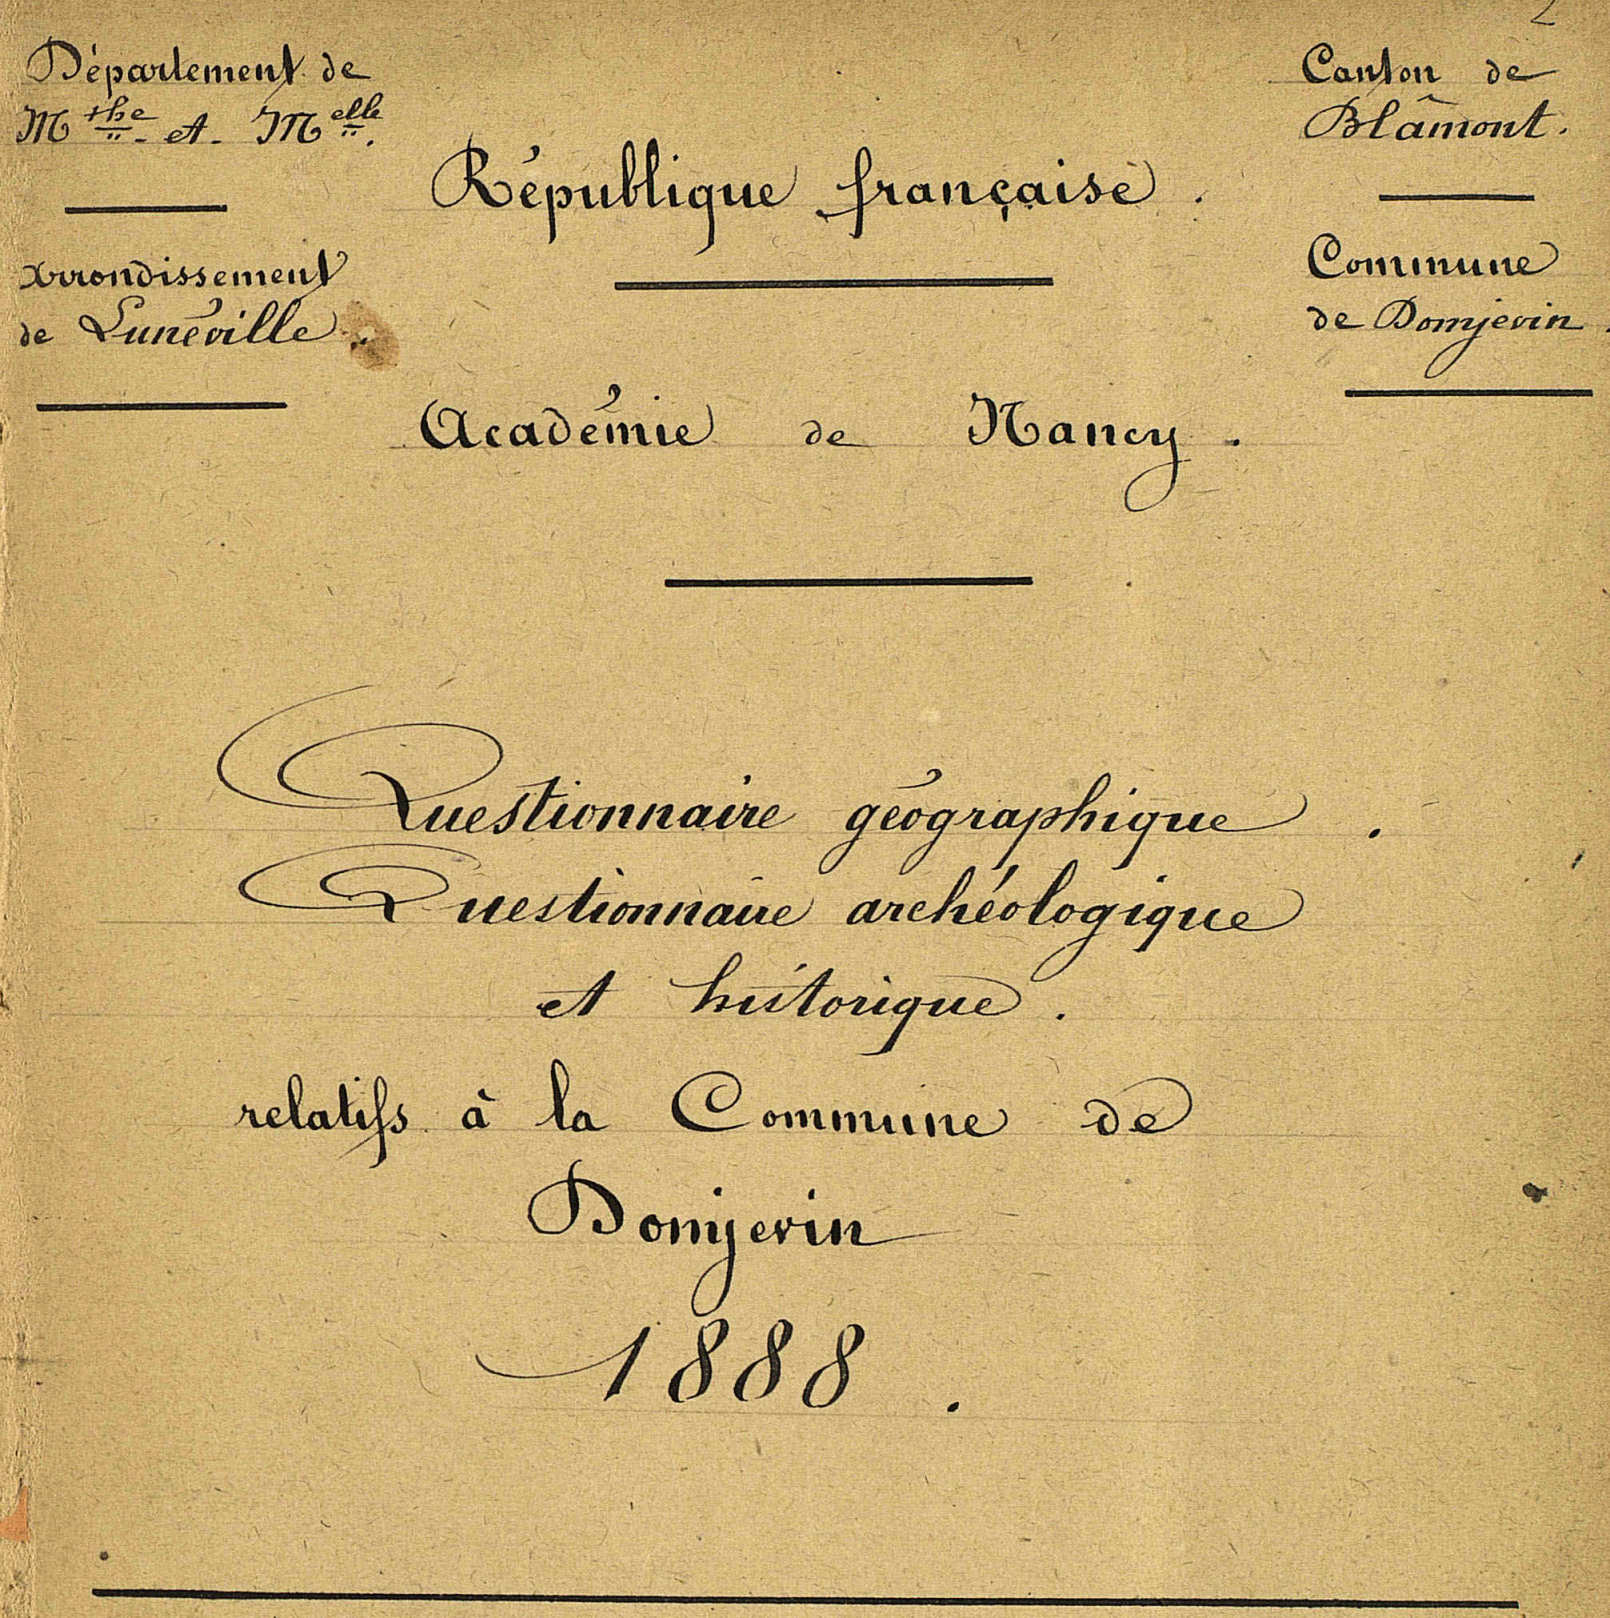 2
Département de
Mthe et Melle.
Arrondissement
de Lunéville.
Canton de
Blâmont.
Commune
de Domjevin.
République française.
Académie de Nancy.
Questionnaire géographique.
Questionnaire archéologique
et historique.
relatifs à la Commune de
Domjevin
1888.